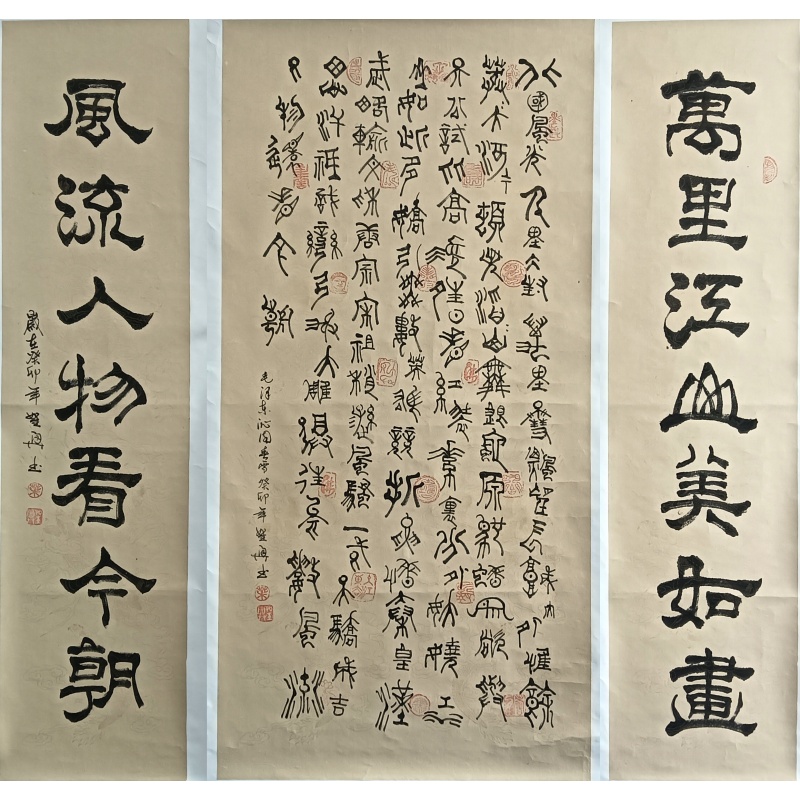 萬里江山美如畫
北國風光千里冰封萬里雪飄望長城內外惟餘
莽莽大河上下頓失滔滔山舞銀蛇原馳蠟象欲與
天公試比高須晴日看紅裝素裹分外妖嬈江
山如此多嬌引無數英雄競折腰惜秦皇漢
武略輸文采唐宗宋祖稍遜風騷一代天驕成吉
思汗只識彎弓射大雕俱往矣數風流
人物還看今朝
毛泽东沁园春雪癸卯年书
風流人物看今朝
歲在癸卯年书